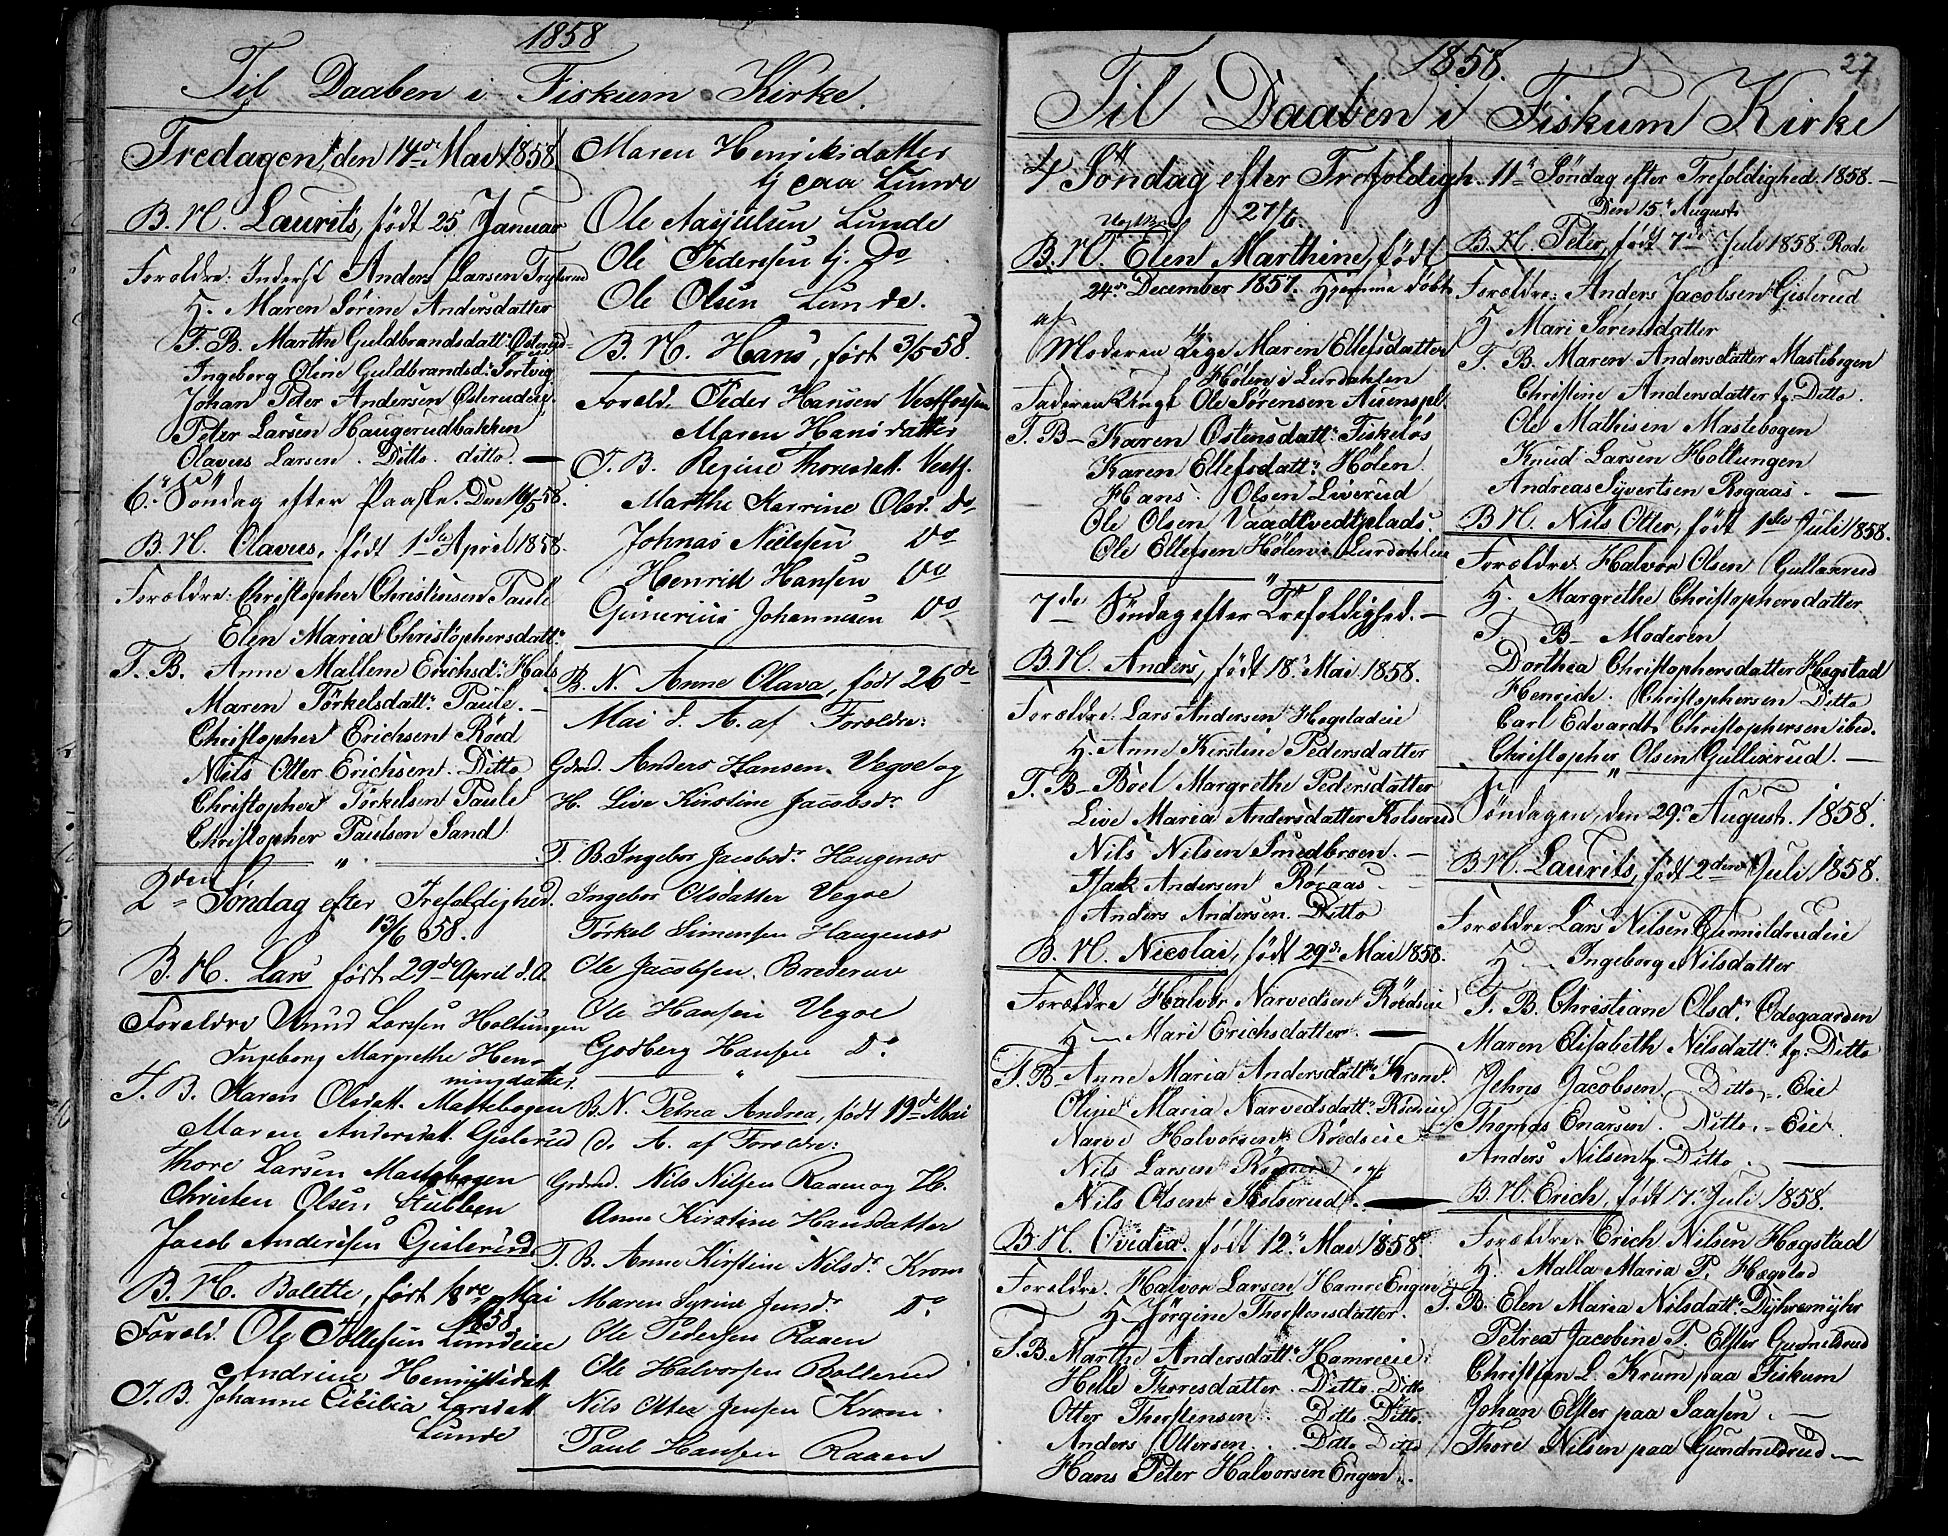 1858
Til Daaben i Fiskum Kirke.
Fredagen, den 14de Mai 1858
B. N. Laurits, født 25 Januar
Forældre: Inderst Anders Larsen
H. Maren Sørene Andersdatter
F. B. Marthe Guldbrandsdatt:
Ingeborg Oline Guldbrandsd:
Johan Peter Andersen
Peter Larsen Haugerudbakken
Olaves Larsen. Ditto. ditto.
6. Søndag efter Paaske. Den 16/5 58.
B. N. Olavus, født 1ste April 1858.
Forældre: Christopher Christensen Paule
Elen Maria Christophersdatt:
F. B. Anne Mallene Erichsd: Hals
Maren Törkelsdatt: Paule.
Christopher Erichsen Röed
Nils Otter Erichsen. Ditto
Christopher Törkelsen Paule
Christopher Paulsen Sand
2den Søndag efter Trefoldighed.
13/6 58.
B. N. Lars født 29de April d. A.
Forældre Knud Larsen Holtungen
Ingeborg Margrethe Hen-
ningdatter
F. B. Karen Olsdatt. Mastebogen
Maren Andersdatt. Gislerud
Thore Larsen Mastebogen
Christen Olsen Stubben
Jacob Andersen Gislerud
B. N. Bolette, født Mai
1858
Foræld. Ole Tollefsen Lundeeie
Andrine Henriksdatt
F. B. Johanne Cicilia Larsdatt
Lunde
Maren Henriksdatter
tj paa Lunde
Ole Lunde
Ole Pedersen tj. Do
Ole Olsen Lunde.
B. N. Hans, født 3/5 58.
Foræld. Peder Hansen Vestfossen
Maren Hansdatter
F. B. Regine Thorsdatt. Vestf.
Marthe Karrine Olsd. Do
Johnas Nielsen Do
Henrik Hansen Do
Gunerius Johannesen Do
B. N. Anne Olava, født 26de
Mai d. A. af Forældre:
Gdmd. Anders Hansen Vegoe og
H. Live Kirstine Jacobsdr
F. B. Ingebor Jacobsdr Haugenæs
Ingebor Olsdatter Vegoe
Törkel Simensen Haugenæs
Ole Jacobsen
Ole Hansen Vegoe
Godberg Hansen Do
B. N. Petrea Andrea, født 19de Mai
d. A. af Forældre:
Grdmd. Nils Nilsen Raaen og H.
Anne Kirstine Hansdatter
F. B. Anne Kirstine Nilsdr Krom
Maren Syrine Jensdr Do.
Ole Pedersen Raaen
Ole Halvorsen Bollerud
Nils Otter Jensen Krom.
Paul Hansen Raaen
27
1858.
Til Daaben i Fiskum Kirke
4 Søndag efter Trefoldigh.
27/6
B. N. Elen Marthine, født
24de December 1857. Hjemme døbt
af
Moderen Pige Maren Ellefsdatter
Hølen i Lurdahlen
Faderen Ungk Ole Sørensen
F. B- Karen Ostensdatt:
Karen Ellefsdatt: Hølen
Hans Olsen Liverud
Ole Olsen
Ole Ellefsen Hølen i Lurdahlen
7de Søndag efter Trefoldighed.-
B. N. Anders, født 18. Mai 1858.
Forældre: Lars Andersen
H. Anne Kirstine Pedersdatter
F. B- Boel Margrethe Pedersdatter
Live Maria Andersdatter Kolserud
Nils Nilsen Smedbroen.
Isak Andersen Rögaas
Anders Andersen. Ditto
B. N. Nicolai, født 29de Mai 1858.
Forældre Halvor Narvedsen Röedseie
H - Mari Erichsdatter.
F. B- Anne Maria Andersdatt:
Oline Maria Narvedsdatt:
Narve Halvorsen Röedseie
Nils Larsen
Nils Olsen Kolserud.
B. N. Ovedia. født 12. Mai 1858
Forældre. Halvor Larsen HamreEngen
H Jörgine Thorstensdatter.
F. B. Marthe Andersdatt: Hamreeie
Helle Thorresdatter Ditto Ditto
Otter Thorstensen Ditto Ditto.
Anders Ottersen. Ditto Ditto
Hans Peter Halvorsen Engen.
11te Søndag efter Trefoldighed 1858.
Den 15. August
B. N. Peter, født 7de Juli 1858.
Forældre: Anders Jacobsen Gislerud
H Mari Sørensdatter
F. B. Maren Andersdatter Mastebogen
Christine Andersdatter tj. Ditto.
Ole Mathisen Mastebogen
Knud Larsen Holtungen
Andreas Syvertsen Rogaas.
B. N. Nils Otter, født 1ste Juli 1858.
Forældre: Halvor Olsen Gullixrud
H. Margrethe Christophersdatter
F. B- Moderen
Dorthea Christophersdatter Hægstad
Henrich. Christophersen Ditto
Carl Edvardt Christophersen ibid.
Christopher Olsen Gullixrud.
Søndagen, den 29. August. 1858.
B. N. Laurits, født 2den Juli 1858.
Forældre Lars Nilsen Gunnildrudeie
H - Ingeborg Nilsdatter
F. B. Christiane Olsd: Ødegaarden
Maren Elisabeth Nilsdatt: tj. Ditto
Jehns Jacobsen Ditto Eie
Thomas Enarsen. Ditto Eie.
Anders Nilsen tj. Ditto.
B. N. Erich, født 17. Juli 1858.
Forældre: Erich Nilsen Hægstad
H. Malla Maria P. Hægstad
F. B. Elen Maria Nilsdatt: Dyhremyhr
Petrea Jacobine P. Elster Gundrildrud
Christian L. Krum paa Fiskum
Johan Elster paa Saasen.
Thore Nilsen paa Gundrildrud